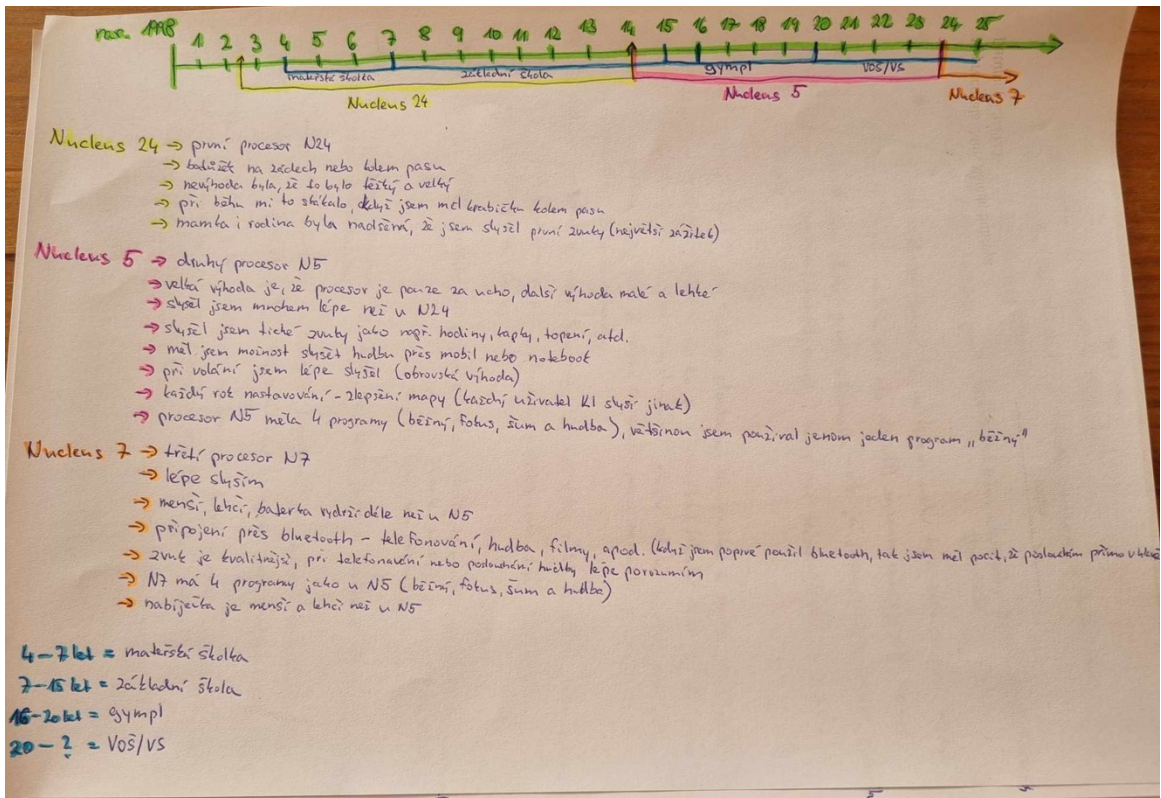 nar. 1998 1 2 3 4 5 6 7 8 9 10 11 12 13 14 15 16 17 18 19 20 21 22 23 24 25
mateřská školka základní škola gympl VOŠ/VŠ
Nucleus 24 Nucleus 5 Nucleus 7
Nucleus 24 → první procesor N24
→ batůžek na zádech nebo kolem pasu
→ nevýhoda byla, že to bylo těžký a velký
→ při běhu mi to skákalo, když jsem měl krabičku kolem pasu
→ mamka i rodina byla nadšená, že jsem slyšel první zvuky (největší zážitek)
Nucleus 5 → druhý procesor N5
→ velká výhoda je, že procesor je pouze za ucho, další výhoda malé a lehké
→ slyšel jsem mnohem lépe než u N24
→ slyšel jsem tiché zvuky jako např. hodiny, kapky, topení, atd.
→ měl jsem možnost slyšet hudbu přes mobil nebo notebook
→ při volání jsem lépe slyšel (obrovská výhoda)
→ každý rok nastavování - zlepšení mapy (každý uživatel KI slyší jinak)
→ procesor N5 měla 4 programy (běžný, fokus, šum a hudba), většinou jsem používal jenom jeden program „běžný"
Nucleus 7 → třetí procesor N7
→ lépe slyším
→ menší, lehčí, baterka vydrží déle než u N5
→ připojení přes bluetooth - telefonování, hudba, filmy, apod. (když jsem poprvé použil bluetooth, tak jsem měl pocit, že poslouchám přímo v hlavě
→ zvuk je kvalitnější, při telefonování nebo poslouchání hudby lépe porozumím
→ N7 má 4 programy jako u N5 (běžný, fokus, šum a hudba)
→ nabíječka je menší a lehčí než u N5
4-7 let = mateřská školka
7-15 let = základní škola
16-20 let = gympl
20 - ? = VOŠ/VS